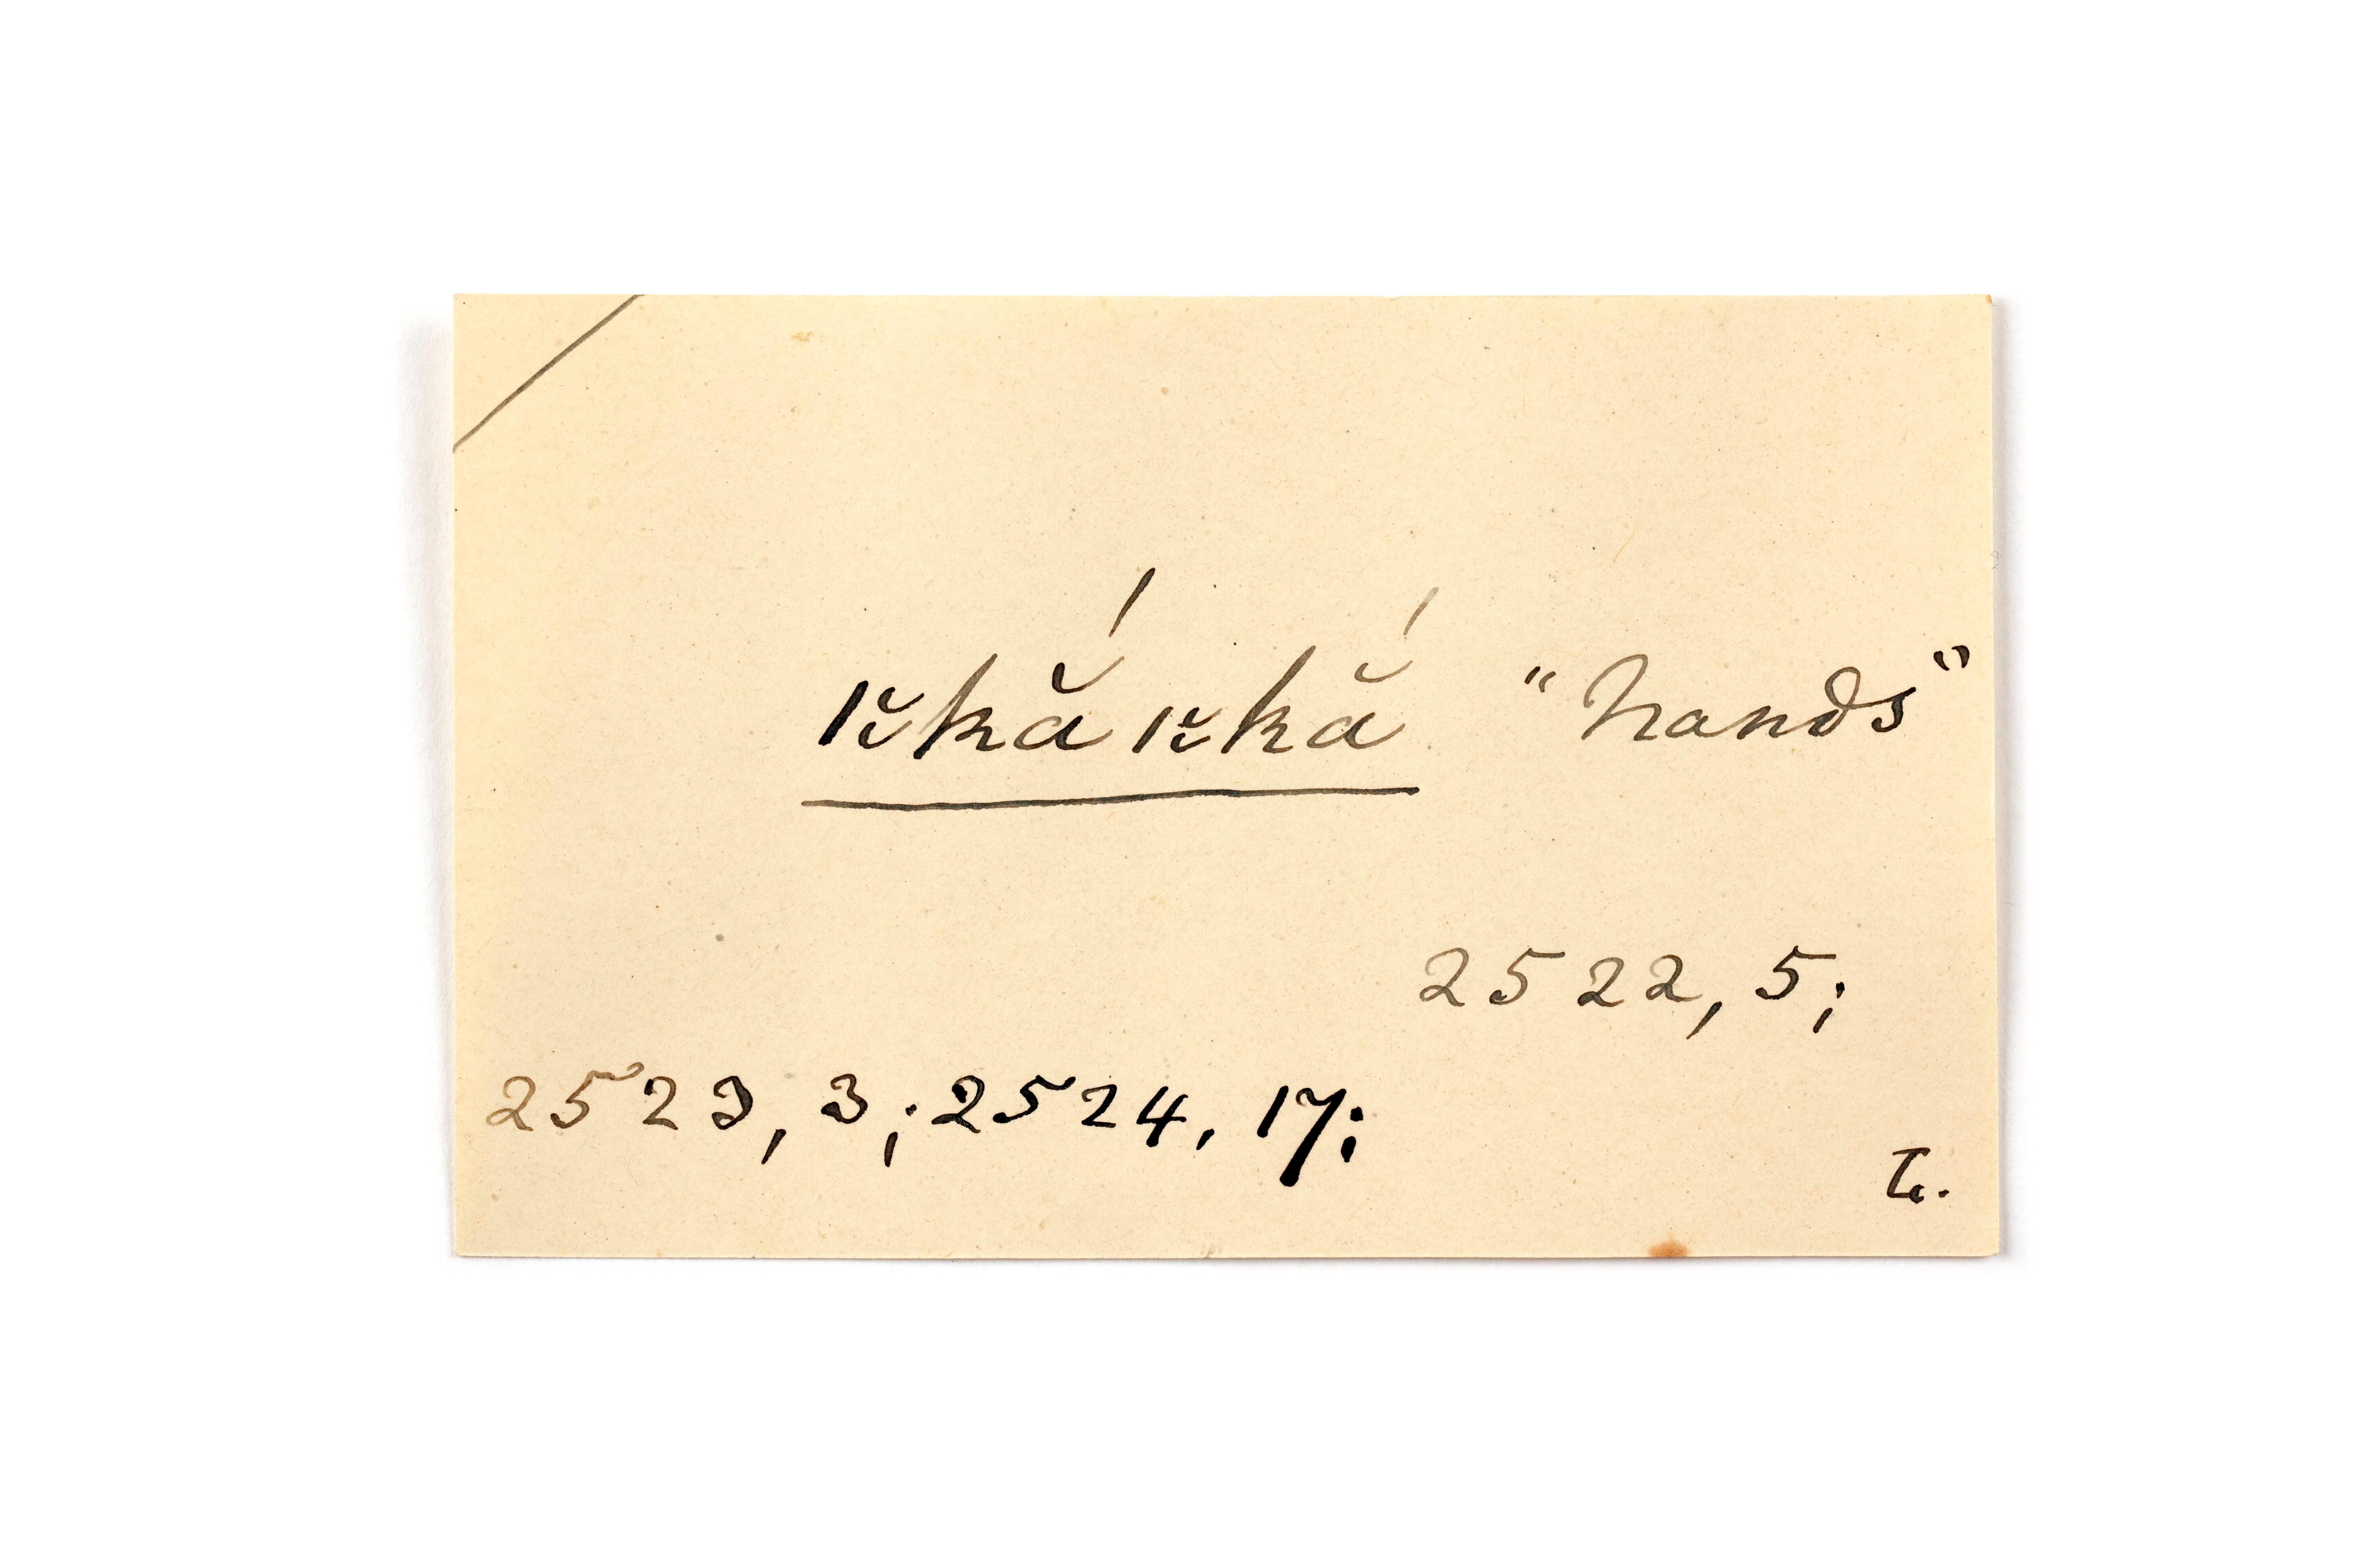 ıčkắıčkắ "hands"
2522, 5;
2523, 3; 2524, 17;